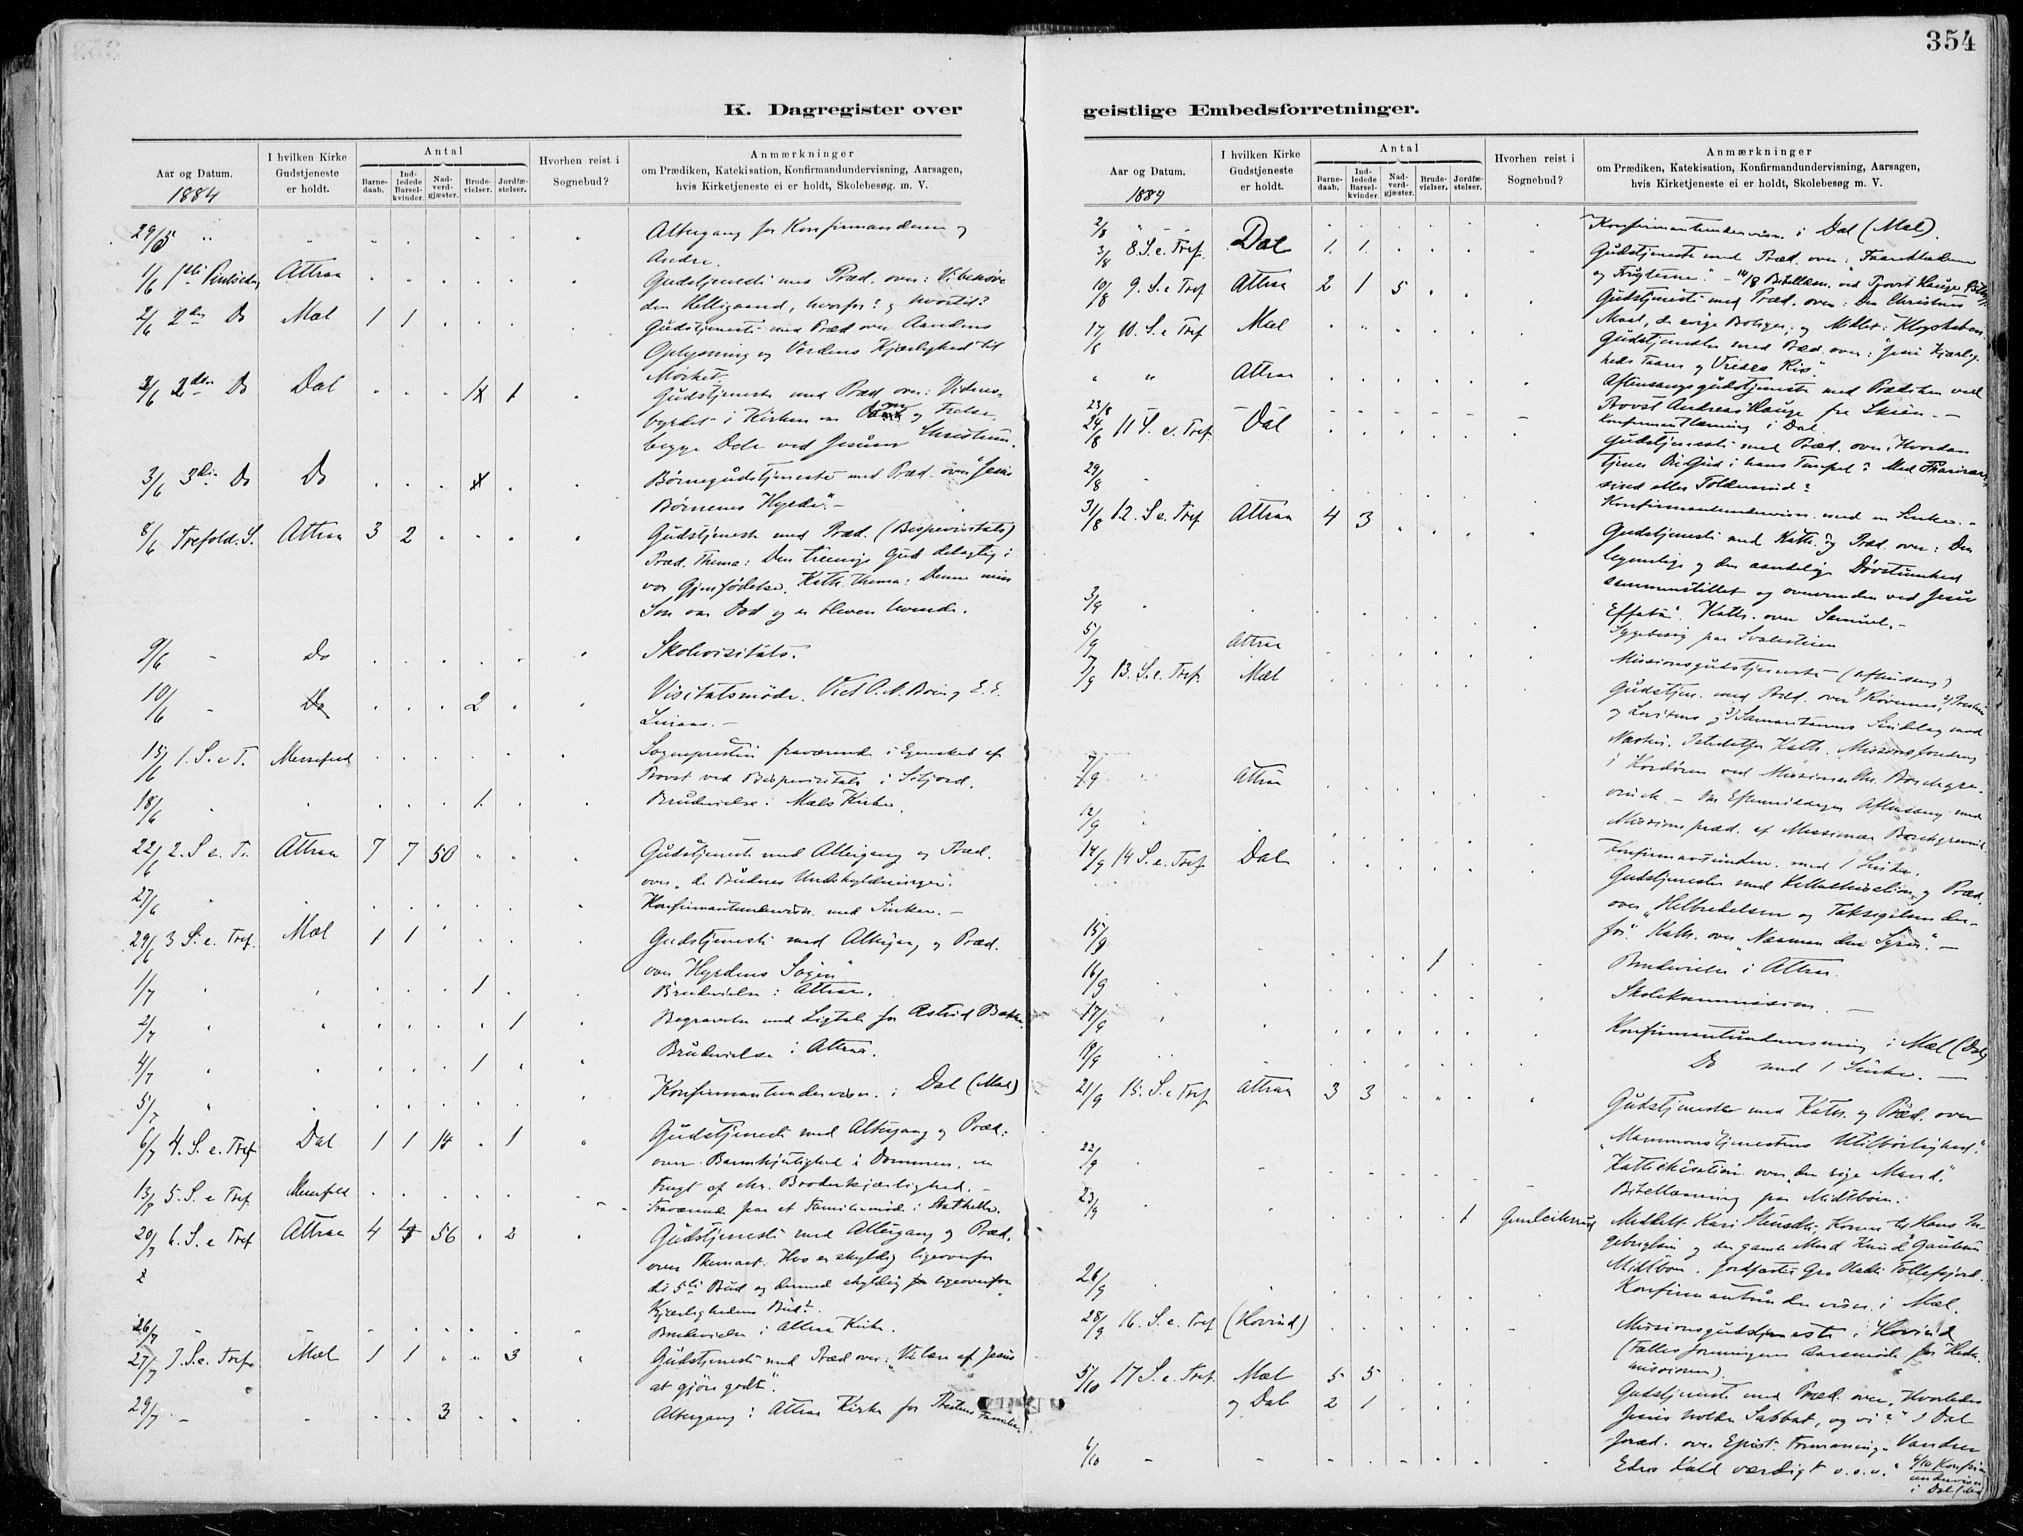 354
K. Dagregister over
Aar og Datum.
1884
I hvilken Kirke
Gudstjeneste
er holdt.
Antal
Barne-
daab.
Ind-
ledede
Barsel-
kvinder.
Nad-
verd-
gjæster.
Brude-
vielser.
Jordfæ-
stelser.
Hvorhen reist i
Sognebud?
Anmærkninger
om Prædiken, Katekisation, Konfirmandundervisning, Aarsagen,
hvis Kirketjeneste ei er holdt, Skolebesøg. m. V.
29/5 Altergang for Konfirmanderne og
Andre.
1/6 1ste Pintsedag Attraa Gudstjeneste med Præd. over: Vi behøve
den Helligaand, hvorfor? og hvortil?
2/6 2den Do Mæl 1 1 Gudstjeneste med Præd over Aandens
Oplysning og Verdens Kjærlighed til
Mørket.
2/6 2den Do Dal 1 Gudstjeneste med Præd over:
i Kirken om og Frelse,
begge Dele ved Jesum Christum.
3/6 3die Do Do Børnegudstjeneste med Præd. over "Jesus
Børnenes Hyrde". -
8/6 Trefold. S. Attraa 3 2 Gudstjeneste med Præd. (Bispevisitats)
Præd. Thema: Den treenige Gud delagtig i
vor Gjenfødelse. Kath. Thema: Denne min
Søn var Død og er bleven levende.
9/6 - Do Skolevisitats.
10/6 - Do 2 Visitatsmøde. Viet O. A. Bøen og E. E.
15/6 1. S. e T. Messefald Sognepresten fraværende i Egenskab af
Provst ved Bispevisitats i Siljord.
18/6 1. Brudevielse i Mæls Kirke.
22/6 2. S e. Tr. Attraa 7 7 50 Gudstjeneste med Altergang og Præd.
over "de Budnes Undskyldninger".
27/6 Konfirmantundervisn. med Sinker. -
29/6 3 S. e. Tref. Mæl 1 1 Gudstjeneste med Altergang og Præd.
over "Hyrdens Søgen"
1/7 1 Brudevielse i Attraa.
2/7 1 Begravelse med Ligtale for Astrid
4/7 1 Brudevielse i Attraa.
5/7 Konfirmantundervisn. i Dal (Mæl)
6/7 4. S. e. Tref. Dal 1 1 14 1 Gudstjeneste med Altergang og Præd.
over Barmhjertighed i Dommen, en
Frugt af chr. Broderkjærlighed. -
13/7 5. S. e Tref Messefald Fraværende paa et Familiemøde i Stathelle.
20/7 6. S. e Tref Attraa 4 4 56 2 Gudstjeneste med Altergang og Præd.
over Themaet: Hvo er skyldig ligeoverfor
det 5te Bud og dermed skyldig ligeoverfor
Kjærlighedens Bud?
26/7 Brudevielse i Attraa Kirke.
27/7 7. S. e. Tref. Mæl 1 1 3 Gudstjeneste med Præd over: "Vi lære af Jesus
at gjøre godt".
29/7 - 3 Altergang i Attraa Kirke for Prestens Familie.
geistlige Embedsforretninger.
Aar og Datum.
1884
I hvilken Kirke
Gudstjeneste
er holdt.
Antal
Barne-
daab.
Ind-
ledede
Barsel-
kvinder.
Nad-
verd-
gjæster.
Brude-
vielser.
Jordfæ-
stelser.
Hvorhen reist i
Sognebud?
Anmærkninger
om Prædiken, Katekisation, Konfirmandundervisning, Aarsagen,
hvis Kirketjeneste ei er holdt, Skolebesøg m V.
2/8 Konfirmantundervisn. i Dal (Mæl).
3/8 8 S. e. Tref. Dal 1. 1. Gudstjeneste med Præd. over: "Faareklæderne
og Frugterne." - 14/8 Bibellæsn. ved Provst Hauge
10/8 9. S. e Tref Attraa 2 1 5 Gudstjeneste med Præd. over: Den Christnes
Maal, de evige Boliger, og Midlet: Klogskaben
17/8 10. S. e Tref Mæl Gudstjeneste med Præd. over: "Jesu Kjærlig-
heds Taare og Vredes Ris"
" " Attraa Aftensangsgudstjeneste med Prædiken ved
Provst Andreas Hauge fra Skien. -
23/8 - Konfirmantlæsning i Dal
24/8 11 S. e. Tref. Dal Gudstjeneste med Præd. over: Hvordan
tjenes Gud i hans Tempel? Med Pharisæer-
sind eller Toldersind?
29/8 Konfirmantundervisn. med en Sinke. -
31/8 12. S e. Tref Attraa 4 3 Gudstjeneste med Kath. og Præd. over: Den
legemlige og den aandelige Døvstumhed
sammenstillet og overvunden ved Jesu
Effata". Kath. over Samuel. -
3/9 Sygebesøg paa
5/9 Attraa Missionsgudstjeneste (aftensang)
7/9 13. S. e. Tref. Mæl Gudstjen. med Præd. over 1) Røvernes, 2) Prestens
og Levitens og 3) Samaritanens Sindelag mod
Næsten. Istedetfor Kath. Missionsforedrag
i Kordøren ved Missionær Chr. Borchgre-
7/9 Attraa vink. - Om Eftermiddagen Aftensang med
Missionspræd. af Missionær Borchgrevink.
12/9 Konfirmantunderv. med 1 Sinke.
14/9 14 S. e. Tref. Dal Gudstjeneste med Kathekisation og Præd.
over "Helbredelsen og Taksigelsen der-
for." Kath. over "Naaman den Syrer". -
15/9 1 Brudevielse i Attraa.
16/9 Skolekommission. -
17/9 Konfirmantundervisning i Mæl (Dal)
19/9 Do med 1 Sinke. -
21/9 15. S. e Tref Attraa 3 3 Gudstjeneste med Kath. og Præd. over
"Mammonstjenestens Utilbørlighed".
Kathekisation over "den rige Mand".
22/9 Bibellæsning paa Midtbøen.
23/9 1 Gunleiksrud Meddelt Kari Kone til Hans In-
gebrigtsen og den gamle Mand Knud Gautesen
Midtbøen. Jordfæstet Gro
26/9 Konfirmantundervisn. i Mæl.
28/9 16. S. e. Tref (Hovind) Missionsgudstjeneste i Hovind
(Fællesforeningens Aarsmøde for Hedn.
missionen).
5/10 17 S. e. Tref. Mæl 5 5 Gudstjeneste med Præd. over "Hvorledes
og Dal 2 1 Jesus holder Sabbat, og vi?" I Dal
Præd. over Epist. Formaning: Vandrer
6/10 - Eders Kald værdigt o.s.v." 6/10 Konfirm.
undervisn
i Dal